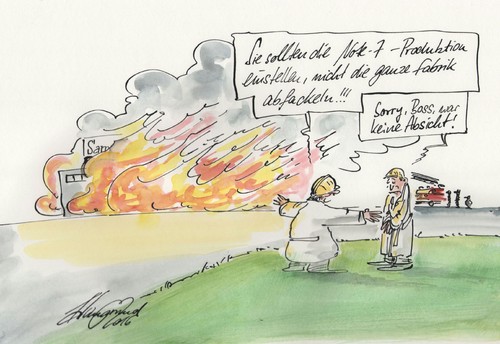 Sie sollten die Note-7-Produktion
einstellen, nicht die ganze Fabrik
abfackeln!!!
Sorry, Boss, war
keine Absicht!
Sam
2016